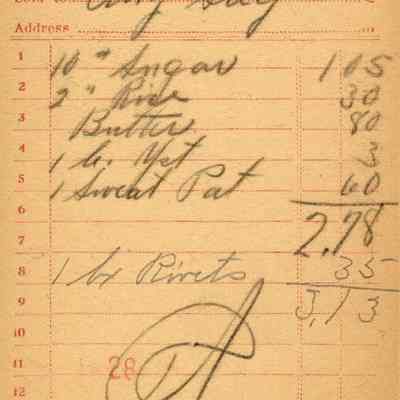 Address
1 10 " Sugar 105
2 2 " Rice 30
3 Butter 80
4 1 b. Yst 3
5 1 Sweat Pat 60
6 2.78
7
8 1 bx Rivets 35
9 3,13
10
11 28
12